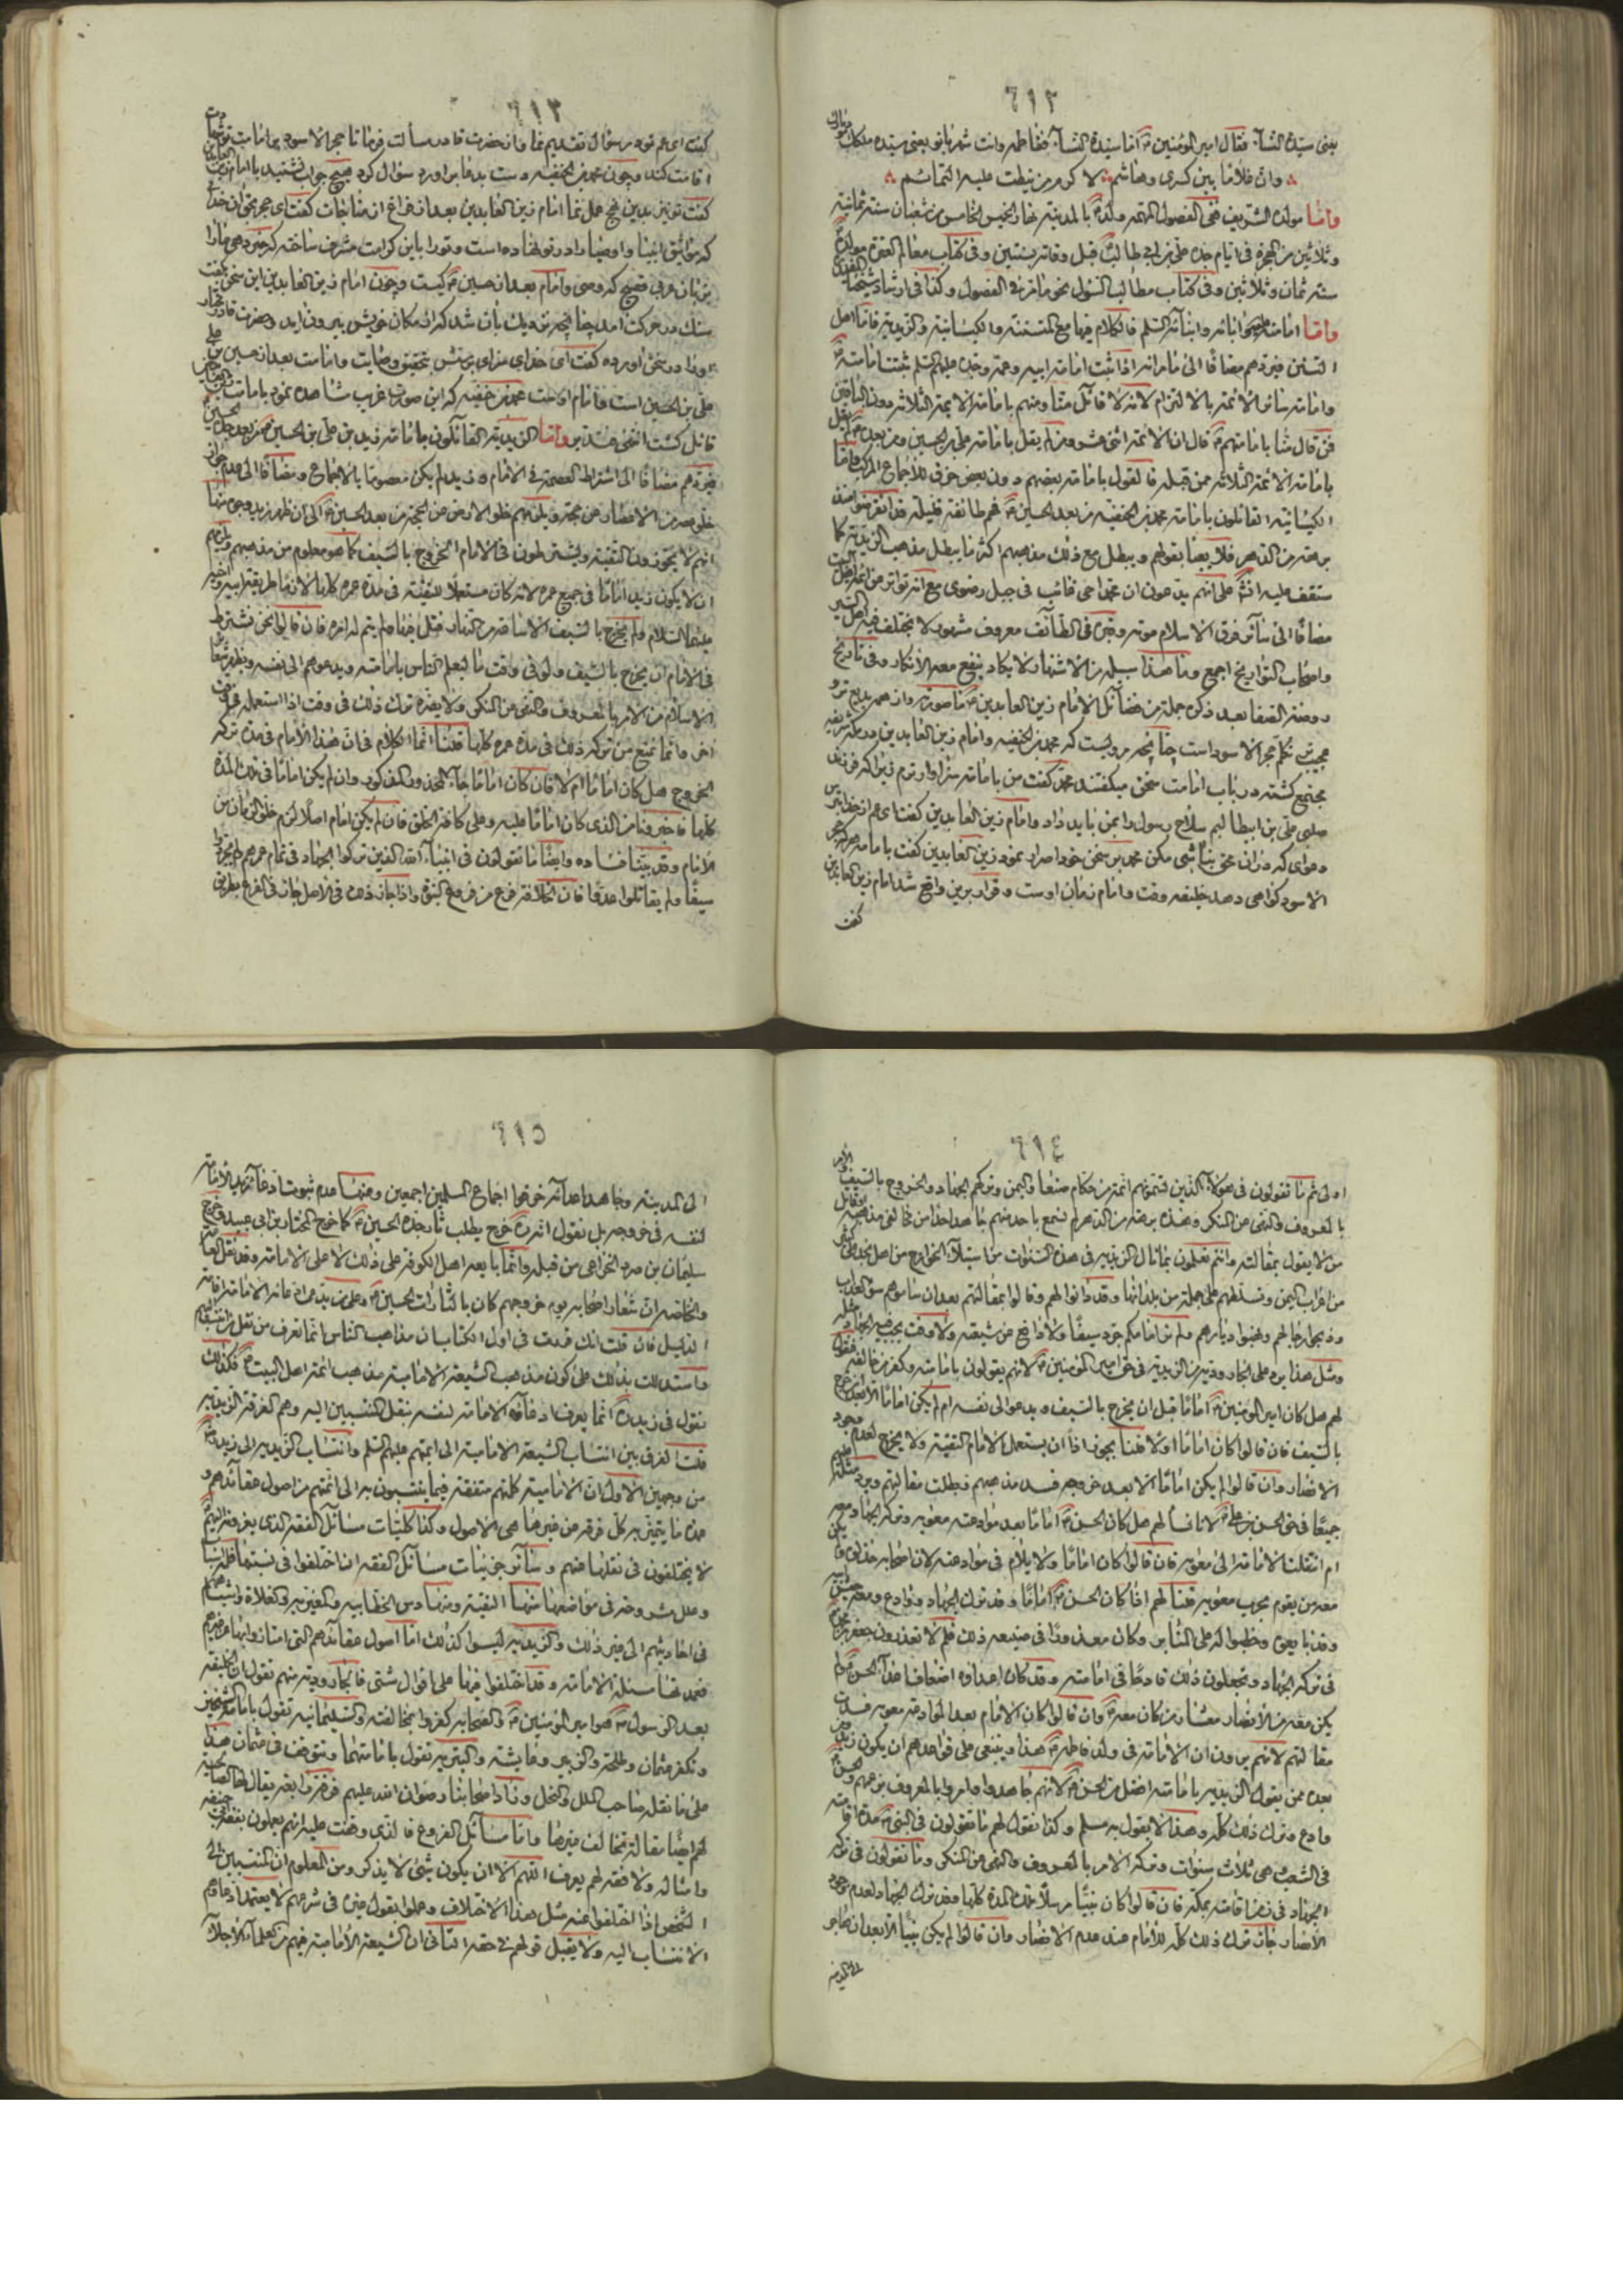 ٦١٢
يعنى سيّدة النسآء فقال امير المؤمنين ع انما سيّدة النسآء فاطمه وانت شهر بانو يعنى سيّده
وانّ غلامًا بين كسرى وهاشم لاكرم من نيطت عليه التمائم
وامّا مولده الشريف ففى الفصول المهمّه ولد ع بالمدينه نهار الخميس الخامس من شعبان سنة ثمانية
وثلاثين من الهجرة فى ايام جدّه علىّ بن ابى طالب ع قبل وفاته بسنتين وفى كتاب معالم العترة مولده
سنة ثمان وثلاثين وفى كتاب مطالب السئول نحو ما مرّ فى الفصول وكذا فى ارشاد شيخنا المفيد
وامّا امامته وابنائه السّلم فالكلام فيها مع المتسننة والكيسانية والزيدية فامّا اهل
التسنّن فيردهم مضافًا الى ما مرّ انه اذا ثبت امامة ابيه وعمّه وجدّه عليهم السّلم ثبتت امامته ع
وامامة سائر الائمة بالالتزام لانه لا قائل منّا ومنهم بامامة الائمة الثلاثة دون الباقين
فمن قال منّا بامامتهم ع قال انّ الائمة اثنى عشر ومن لم يقل بامامة علىّ بن الحسين ومن بعده ع لم يقل
بامامة الائمة الثلاثة من قبله فالقول بامامة بعضهم دون بعض خرق للاجماع المركب وامّا
الكيسانيّة القائلون بامامة محمد بن الحنفيه من بعد الحسين ع فهم طائفة قليلة قد انقرضوا منذ
برهة من الدّهر فلا يعبأ بقولهم ويبطل مع ذلك مذهبهم اكثر ما يبطل مذهب الزيديّة كما
ستقف عليه انشآءالله على انهم يدّعون انّ محمّدا حى غائب فى جبل رضوى مع انه تواتر عن ائمة اهل البيت
مضافًا الى سآئر فرق الاسلام موته وقبره فى الطّائف معروف مشهور لا يختلف فيه اهل السير
واصحاب التواريخ اجمع وما هذا سبيله من الاشتهار لا يكاد ينفع معه الانكار وفى تاريخ
روضة الصّفا بعد ذكره جملة من فضائل الامام زين العابدين ع ما صورته واز همه بديع تر و
عجيب تر تكلّم حجر الاسود است چنانچه مرويست كه محمد بن الحنفيه وامام زين العابدين در مكّه شريفه
مجتمع گشته در باب امامت سخن ميگفتند محمّد گفت من بامامت سزاوارترم زيرا كه فرزند
صلبى علىّ بن ابيطالبم سلاح رسول را بمن بايد داد وامام زين العابدين گفت اى عم از خدا بترس
ودعوى كه در ان محقّ نباشى مكن محمد بر سخن خود اصرار نمود زين العابدين گفت
الاسود گواهى دهد خليفه وقت وامام زمان اوست وقرار برين واقع شد امام زين العابدين
گفت
٦١٣
گفت اى عم تو در سؤال تقديم نما
اقامت كند وچون محمد بن الحنفيه دست بدعا براورد سؤال كرد هيچ جواب نشنيد
گفت تو نيز بدين نهج عمل نما امام زين العابدين بعد از فراغ از مناجات گفت اى حجر بحقّ ان خداى
كه مواثيق انبيا واوصيا را در تو نهاده است وتو را باين كرامت مشرف ساخته كه خبر دهى ما را
بزبان عربى فصيح كه وصى وامام بعد از حسين ع كيست وچون امام زين العابدين اين سخن گفت
سنگ در حركت امد چنانچه نزديك بان شد كه از مكان خويش بيرون ايد وحضرت قادر مختار
او را در سخن اورده گفت اى خداى سزاى پرستش بتحقيق وصايت وامامت بعد از حسين بن على
علىّ بن الحسين است وامام اوست محمد بن حنفيه كه اين صورت غريب مشاهده نمود بامامت
قائل گشت انتهى وامّا الزيدية القائلون بامامة زيد بن علىّ بن الحسين ع
فيردهم مضافًا الى اشتراط العصمة فى الامام وزيد لم يكن معصومًا بالاجماع ومضافًا الى عدم جواز
خلوّ عصر من الاعصار عن حجة ويلزمهم خلوّ الارض عن الحجة من بعد الحسين ع الى ان ظهر زيد
انهم لا يجوّزون التقيّة ويشترطون فى الامام الخروج بالسّيف كما هو معلوم من مذهبهم ويلزمهم
ان لا يكون زيد امامًا فى جميع عمره لانه كان مستعملًا للتقيّة فى مدّة عمره كلها
عليهما السّلام ولم يخرج بالسّيف الا ساعة من النهار فقتل فيها ولم يتم له امره فان قالوا نحن نشترط
فى الامام ان يخرج بالسّيف ولو فى وقت ما ليعلم النّاس بامامته ويدعوهم الى نفسه
الاسلام من الامر بالمعروف والنّهى عن المنكر ولا يضرّه ترك ذلك فى وقت اذا استعمله فى وقت
اخر وانّما نمنع من تركه ذلك فى مدّة عمره كلّها قلنا انّما الكلام فى انّ هذا الامام فى مدّة تركه
الخروج هل كان امامًا ام لا فان كان امامًا جآء المحذور وان لم يكن امامًا فى تلك المدّة
كلّها فاخبرونا من الذى كان امامًا عليه وعلى كافّة الخلق فان لم يكن امام اصلًا لزم خلوّ الزمان من
الامام وقد بيّنا فساده وايضًا ما تقولون فى انبيآء الله الذين تركوا الجهاد فى تمام عمرهم ولم يجرّدوا
سيفًا ولم يقاتلوا عدوًّا فانّ الخلافة فرع من فروع النبوّة واذا جاز ذلك فى الاصل جاز فى الفرع بطريق
٦١٤
اولى ثم ما تقولون فى هؤلآء الذين تسمّونهم ائمة من حكّام صنعا واليمن وتركهم الجهاد والخروج بالسّيف والامر
بالمعروف والنّهى عن المنكر وهذه برهة من الدّهر لم نسمع باحد منهم جاهد احدا من مخالفى مذهبه
من لا يقول بمقالته وانتم تعلمون بما نال الزيديه فى هذه السنوات من استيلآء الخوارج من اهل نجد على
من اعراب اليمن وتسلّطهم على جملة من بلدانها وقد دانوا لهم وقالوا بمقالتهم بعد ان ساموهم سوء العذاب
وذبحوا رجالهم ونهبوا ديارهم ولم نر امامكم جرّد سيفًا ولا دافع عن شيعته
ومثل هذا يرد على الجاروديه من الزيديه فى حق امير المؤمنين ع لانهم يقولون بامامته وكفر من خالفه فنقول
لهم هل كان امير المؤمنين ع امامًا قبل ان يخرج بالسّيف ويدعو الى نفسه ام لم يكن امامًا الا بعد ان خرج
بالسّيف فان قالوا كان امامًا اوّلا قلنا يجوز اذًا ان يستعمل الامام التقيّة ولا يخرج لعدم وجود
الانصار وان قالوا لم يكن امامًا الا بعد خروجه فسد مذهبهم وبطلت مقالتهم ويرد مثله عليهم
جميعًا فى حق الحسن بن على ع لانا نسألهم هل كان الحسن ع امامًا بعد موادعته معويه وتركه الجهاد
ام انتقلت الامامة الى معويه فان قالوا كان امامًا ولا يلام فى موادعته لانّ اصحابه خذلوه
معه من يقوم بحرب معويه قلنا لهم اذًا كان الحسن ع امامًا وقد ترك الجهاد ووادع
وقد بايعوه وخطبوا له على المنابر وكان معذورًا فى صنيعه ذلك فلم لا تعذرون جعفر بن محمد ع
فى تركه الجهاد وتجعلون ذلك قادحًا فى امامته وقد كان اعداؤه اضعاف اعدآء الحسن ع ولم
يكن معه من الانصار معشار من كان معه ع وان قالوا كان الامام بعد الموادعة معويه فسدت
مقالتهم لانهم يرون ان الامامة فى ولد فاطمه ع هذا وينبغى على قواعدهم ان يكون زيد
بعده ممن يقول الزيديه بامامته افضل من الحسن ع لانهم جاهدوا وامروا بالمعروف
وادع وترك ذلك كلّه وهذا لا يقول به مسلم وكذا نقول لهم ما تقولون فى النبى ص مدّة اقامته
فى الشّعب وهى ثلاث سنوات وتركه الامر بالمعروف والنهى عن المنكر وما تقولون فى تركه
الجهاد فى زمن اقامته بمكّه فان قالوا كان نبيًّا مرسلًا تلك المدّة كلّها وقد ترك الجهاد لعدم وجود
الانصار جاز ترك ذلك كلّه للامام عند عدم الانصار وان قالوا لم يكن نبيًّا الا بعد ان هاجر
الى المدينه
٦١٥
الى المدينه وجاهد اعدآئه خرقوا اجماع المسلمين اجمعين ومنها عدم ثبوت ادّعآء زيد الامامة
لنفسه فى خروجه بل نقول انه ره خرج يطلب بثار جدّه الحسين ع كما خرج المختار بن ابى عبيده وخرج
سليمان بن صرد الخزاعى من قبله وانّما بايعه اهل الكوفه على ذلك لا على الامامة
والخاصة انّ شعار اصحابه يوم خروجهم كان يالثارات الحسين ع وعلى من يدّعى ادّعائه الامامة اقامة
الدليل فان قلت انك قدمت فى اول الكتاب انّ مذاهب الناس انّما تعرف من نقل
واستدللت بذلك على كون مذهب الشيعة الاماميّة مذهب ائمة اهل البيت ع فكذلك
نقول فى زيد ره انّما يعرف ادعآؤه الامامة لنفسه بنقل المنتسبين اليه وهم الفرقة الزيديه
قلت الفرق بين انتساب الشيعة الاماميّة الى ائمتهم عليهم السّلم وانتساب الزيديه الى زيد ره
من وجهين الاول انّ الاماميّة كلهم متفقة فيما ينتسبون به الى ائمّتهم من اصول عقائدهم و
هذه ما يتميّز به كلّ فرقة من غيرها هى الاصول وكذا كليّات مسائل الفقه الذى يعزونه اليهم
لا يختلفون فى نقلها عنهم وسآئر جزئيات مسائل الفقه ان اختلفوا فى نسبتها
وعلل مشروحة فى مواضعها منها التقيّة ومنها دس الخطّابيه والمغيريه والغلاة
فى احاديثهم الى غير ذلك والزيديّه ليسوا كذلك امّا اصول عقائدهم التى امتازوا بها عن غيرهم
فعمدتها مسئلة الامامة وقد اختلفوا فيها على اقوال شتى فالجاروديه منهم تقول انّ الخليفة
بعد الرسول ص هو امير المؤمنين ع والصّحابة كفروا بمخالفته والسّليمانيه تقول بامامة الشيخين
وتكفّر عثمان وطلحة والزّبير وعايشة والبتريه تقول بامامتهما وتتوقف فى عثمان هذا
على ما نقله صاحب الملل والنحل وزاد اصحابنا رضوان الله عليهم فرقة رابعة يقال لها الصّالحيه
لهم ايضًا مقالة تخالف غيرها وامّا مسآئل الفروع فالذى وقفت عليه انهم يعملون بفقه ابى حنيفه
وامثاله ولا فقه لهم يعرف اللّهم الا ان يكون شئ لا يذكر ومن المعلوم انّ المنتسبين الى
الشّخص اذا اختلفوا عنه مثل هذا الاختلاف وعملوا بقول غيره فى شرعهم لا يعتمد
الانتساب اليه ولا يقبل قولهم فى حقه الثانى انّ الشيعة الاماميّة فيهم من العلمآء الاجلّآء